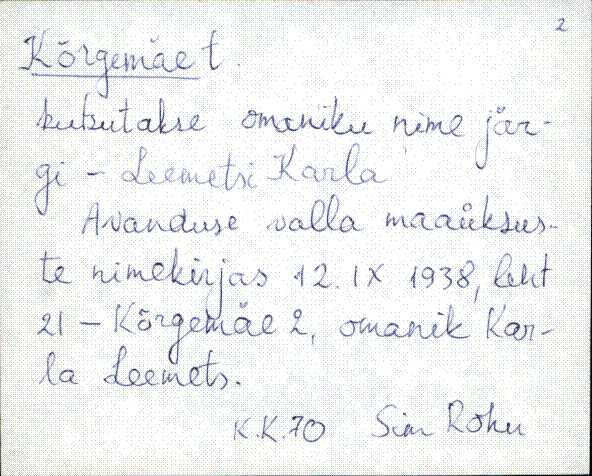 2
Kõrgemäe t.
kutsutakse omaniku nime jär-
gi – Leemetsi Karla
Avanduse valla maaüksus-
te nimekirjas 12. IX 1938, leht
21 – Kõrgemäe 2, omanik Kar-
la Leemets.
K.K.70 Rohu